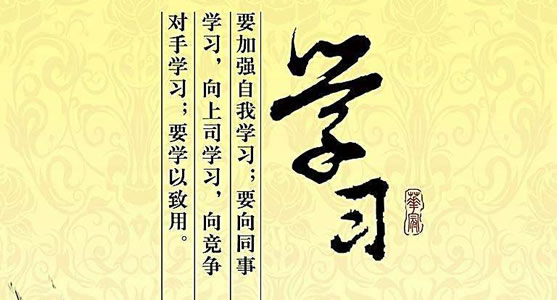 学习
要加强自我学习；要向同事
学习，向上司学习，向竞争
对手学习；要学以致用。